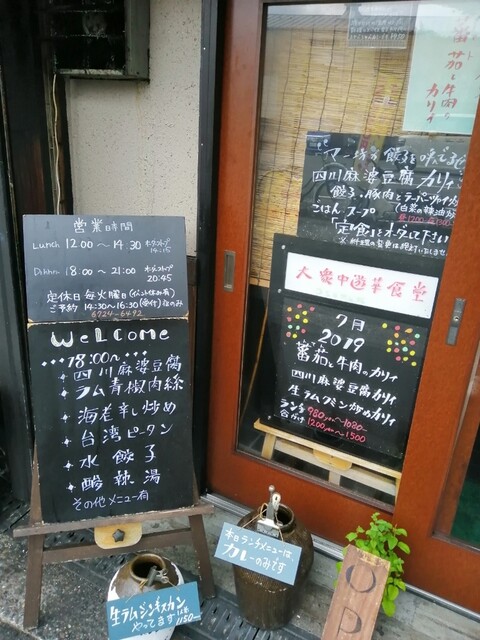 営業時間
Lunch 12:00〜14:30 ラストオーダー 14:15
Dinner 18:00〜21:00 ラストオーダー 20:45
定休日 毎火曜日
ご予約 14:30〜16:30(受付)はのみ
6724-6492
WeLCome
18:00〜
四川麻婆豆腐
ラム青椒肉絲
海老辛し炒め
台湾ピータン
水餃子
酸辣湯
その他メニュー有
生ラムジンギスカン
やってます 1150
本日ランチメニューは
カレーのみです
番茄と牛肉の
カリィ
四川麻婆豆腐カリィ
餃子、豚肉と
ごはん、スープ
「定食」をオーダー下さい
大衆中遊華食堂
7月
2019
番茄と牛肉のカリィ
四川麻婆豆腐カリィ
生ラムクミン炒めカリィ
ランチ 980 〜1080
台カケ 1200 〜1500
OP